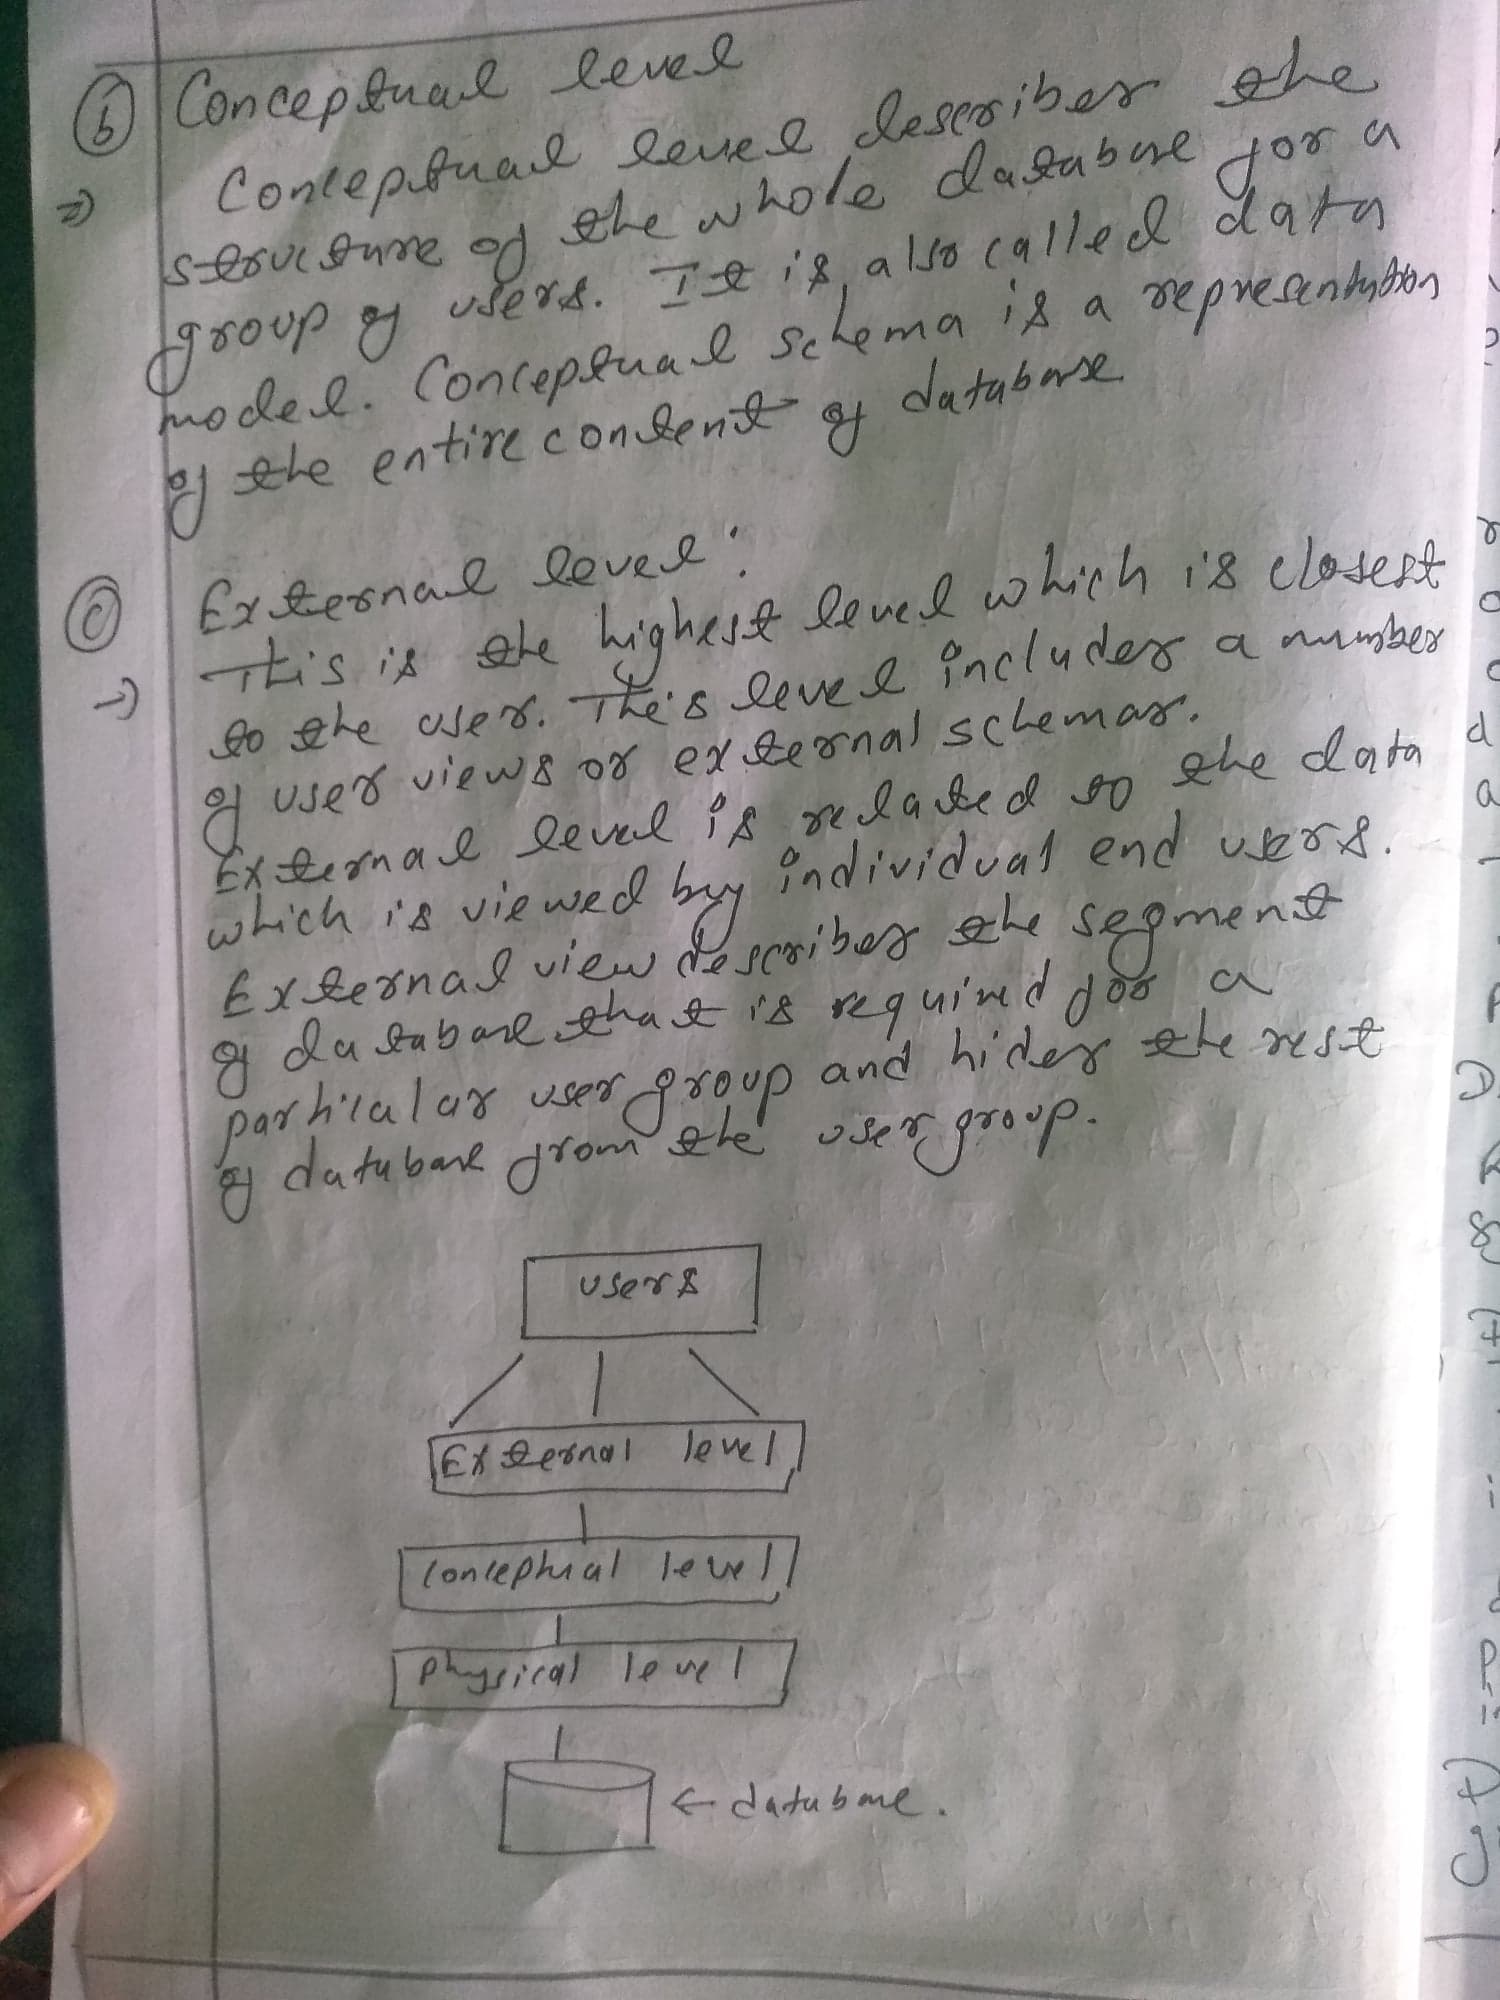 (b) Conceptual level
=) Conceptual level describes the
structure of the whole database for a
group of users. It is also called data
model. Conceptual schema is a representation
of the entire content of database
(c) External level :
-) This is the highest level which is closest
to the user. This level includes a number
of user views or external schemas.
External level is related to the data
which is viewed by individual end users.
External view describes the segment
of database that is required for a
particular user group and hides the rest
of database from the user group.
users
External level
Conceptual level
Physical level
← database.